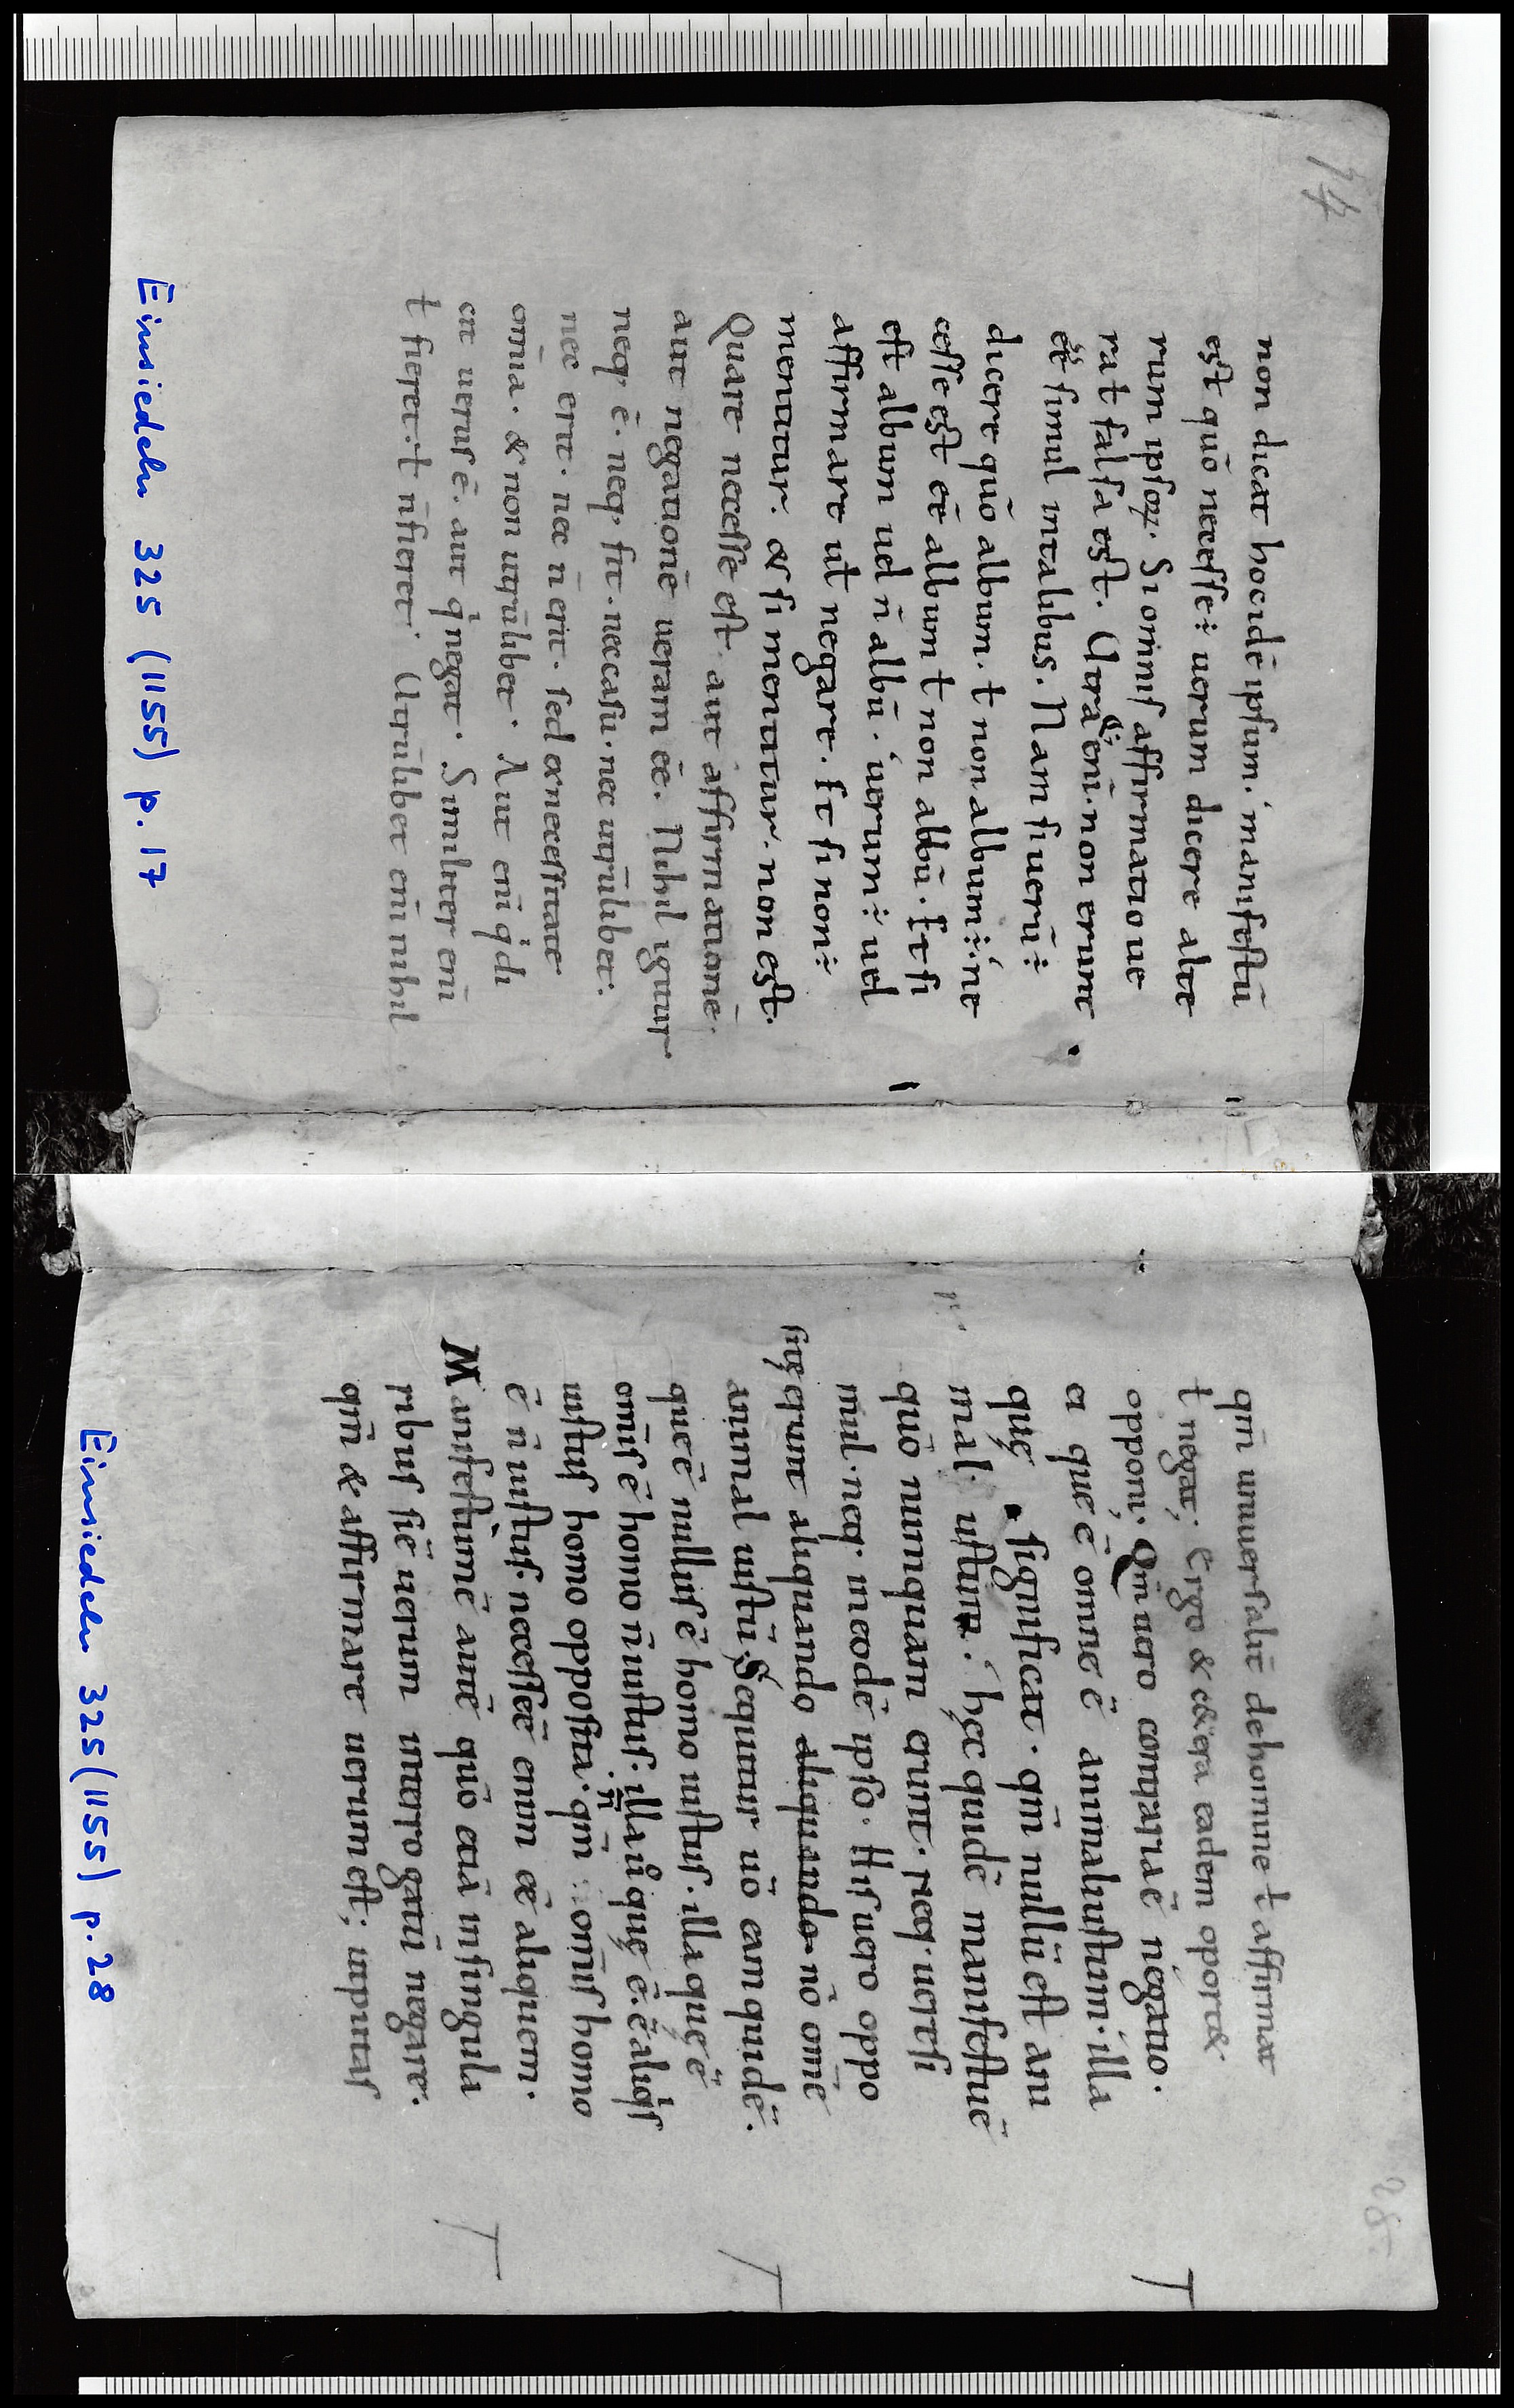 14
non dicat hocidē ipsum. manifestū
est quō necesse÷ uerum dicere alte
rum ipsoꝝ. Si omnis affirmatio ue
ra ł falsa est. Utraq; eni. non erunt
eē simul intalibus. Nam si uerū÷
dicere quō album. ł non album÷. ne
cesse est eē album ł non albū. Et si
est album uel n̄ albū. uerum÷ uel
affirmare ut negare. Et si non÷
mentitur. & si mentitur. non est.
Quare necesse est aut affirmationē.
aut negationē ueram eē. Nihil igitur
neq; ē. neq; fit. necasu. nec utrūlibet.
nec erit. nec n̄ erit. sed exnecessitate
omīa. & non utrūlibet. Aut eni q di
cit uerus ē. aut q negat. Similiter eni
ł fieret. ł n̄fieret. Utrūlibet eni nihil
Einsiedeln 325 (1155) p. 17
qm̄ uniuersalit dehomine ł affirmat
ł negat; Ergo & cetera eadem oportet
opponi; Qm̄ uero contraria ē negatio.
ei quę ē omne ē animaliustum. illa
quę significat. qm̄ nullū est ani
mal iustum. hęc quidē manifestū ē
quō numquam erunt. neq; ueręsi
mul. neq; ineodē ipso. His uero oppo
sitę erunt aliquando aliquando nō omē
animal iustū. Sequntur uō eam quidē.
que ē nullus ē homo iustus. illa quę ē
omīs ē homo n̄iustus. illa ū quę ē. ē aliqs
iustus homo opposita. qm̄ n̄ omīs homo
ē n̄ iustus. necesse ē enim eē aliquem.
Manifestum ē autē quō etiā insingula
ribus si ē uerum interrogatū negare.
qm̄ & affirmare uerum est; ut putas
28
Einsiedeln 325 (1155) p. 28